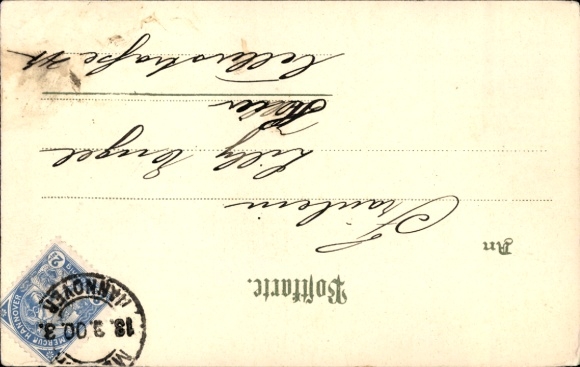 Postkarte.
An
Fräulein
Lilly Engel
Hier
Cellerstraße 44
MERCUR HANNOVER
2
HANNOVER
13. 3. 00. 3.